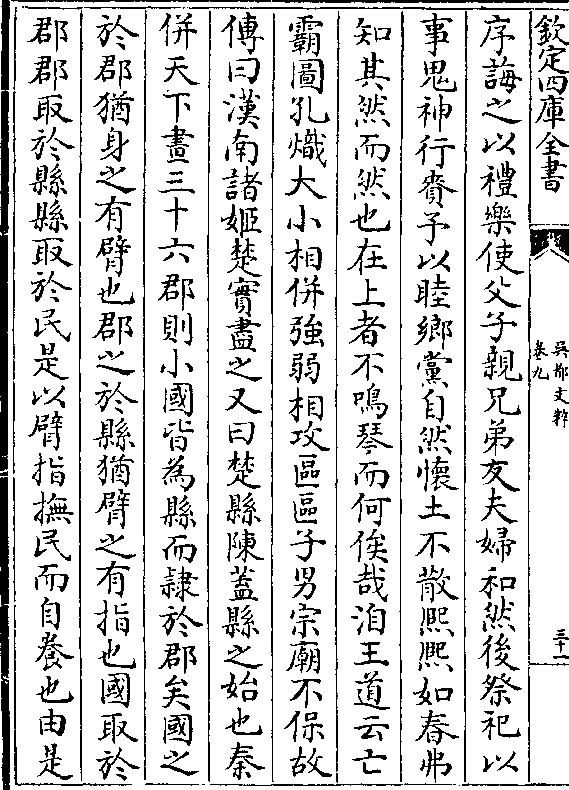 欽定四庫全書
吳都文粹
卷九
三十一
序誨之以禮樂使父子親兄弟友夫婦和然後祭祀以
事鬼神行賚予以睦鄉黨自然懷土不散熈熈如春弗
知其然而然也在上者不鳴琴而何俟哉洎王道云亡
霸圖孔熾大小相併強弱相攻區區子男宗廟不保故
傳曰漢南諸姬楚實盡之又曰楚縣陳蓋縣之始也秦
併天下畫三十六郡則小國皆為縣而隷於郡矣國之
於郡猶身之有臂也郡之於縣猶臂之有指也國取於
郡郡取於縣縣取於民是以臂指撫民而自養也由是